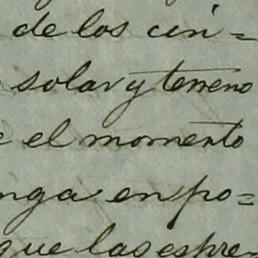 de los cin=
solar y terreno
el momento
nga en po=
que las expre=